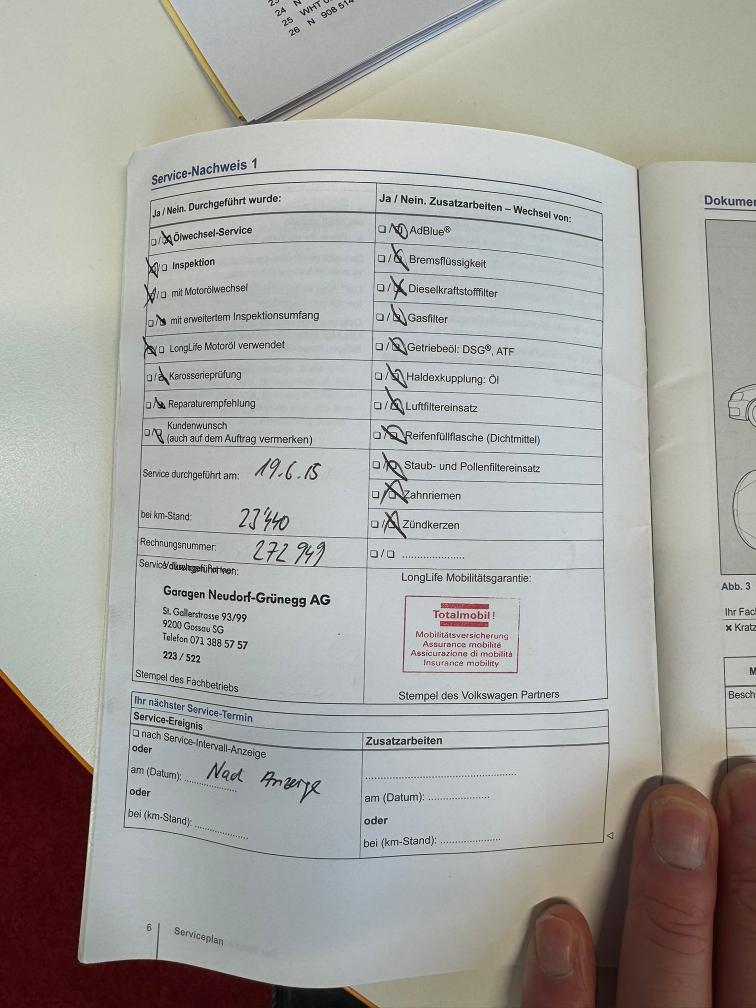 24 N
25 WHT
26 N 908 514
Service-Nachweis 1
Ja / Nein. Durchgeführt wurde:
Ölwechsel-Service
Inspektion
mit Motorölwechsel
mit erweitertem Inspektionsumfang
LongLife Motoröl verwendet
Karosserieprüfung
Reparaturempfehlung
Kundenwunsch
(auch auf dem Auftrag vermerken)
Service durchgeführt am: 19.6.15
bei km-Stand: 23'440
Rechnungsnummer: 272 949
Garagen Neudorf-Grünegg AG
St. Gallerstrasse 93/99
9200 Gossau SG
Telefon 071 388 57 57
223 / 522
Stempel des Fachbetriebs
Ja / Nein. Zusatzarbeiten – Wechsel von:
AdBlue®
Bremsflüssigkeit
Dieselkraftstofffilter
Gasfilter
Getriebeöl: DSG®, ATF
Haldexkupplung: Öl
Luftfiltereinsatz
Reifenfüllflasche (Dichtmittel)
Staub- und Pollenfiltereinsatz
Zahnriemen
Zündkerzen
❑ / ❑ .....................
LongLife Mobilitätsgarantie:
Totalmobil!
Mobilitätsversicherung
Assurance mobilité
Assicurazione di mobilità
Insurance mobility
Stempel des Volkswagen Partners
Ihr nächster Service-Termin
Service-Ereignis
❑ nach Service-Intervall-Anzeige
oder
am (Datum): Nach Anzeige
oder
bei (km-Stand): .................
Zusatzarbeiten
am (Datum): ....................
oder
bei (km-Stand): ....................
6 Serviceplan
Abb. 3
Ihr Fac
× Kratz
M
Besch